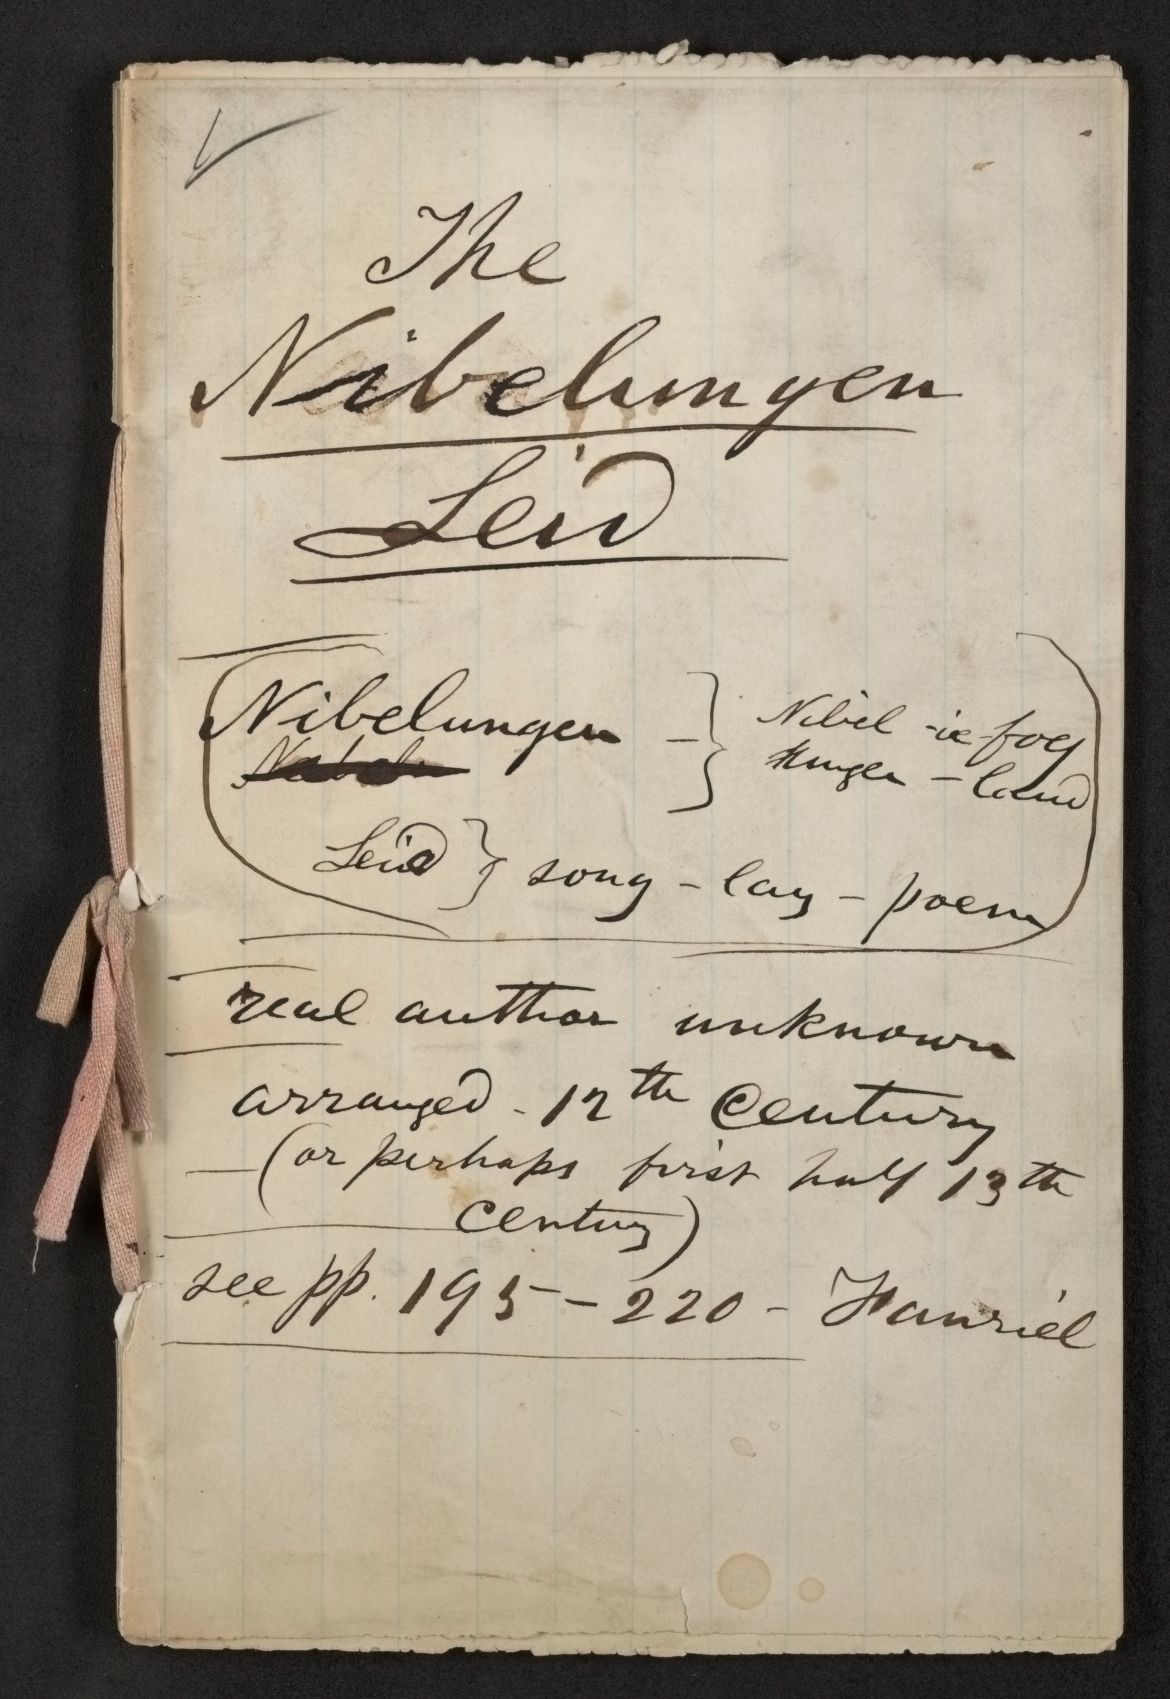 The
Nibelungen
Leid
Nibelungen - } Nibel - ie - fog
ungen - land
Leid } song - lay - poem
real author unknown
arranged - 12th Century
- (or perhaps first half 13th
Century)
see pp. 195 - 220 - Fauriel